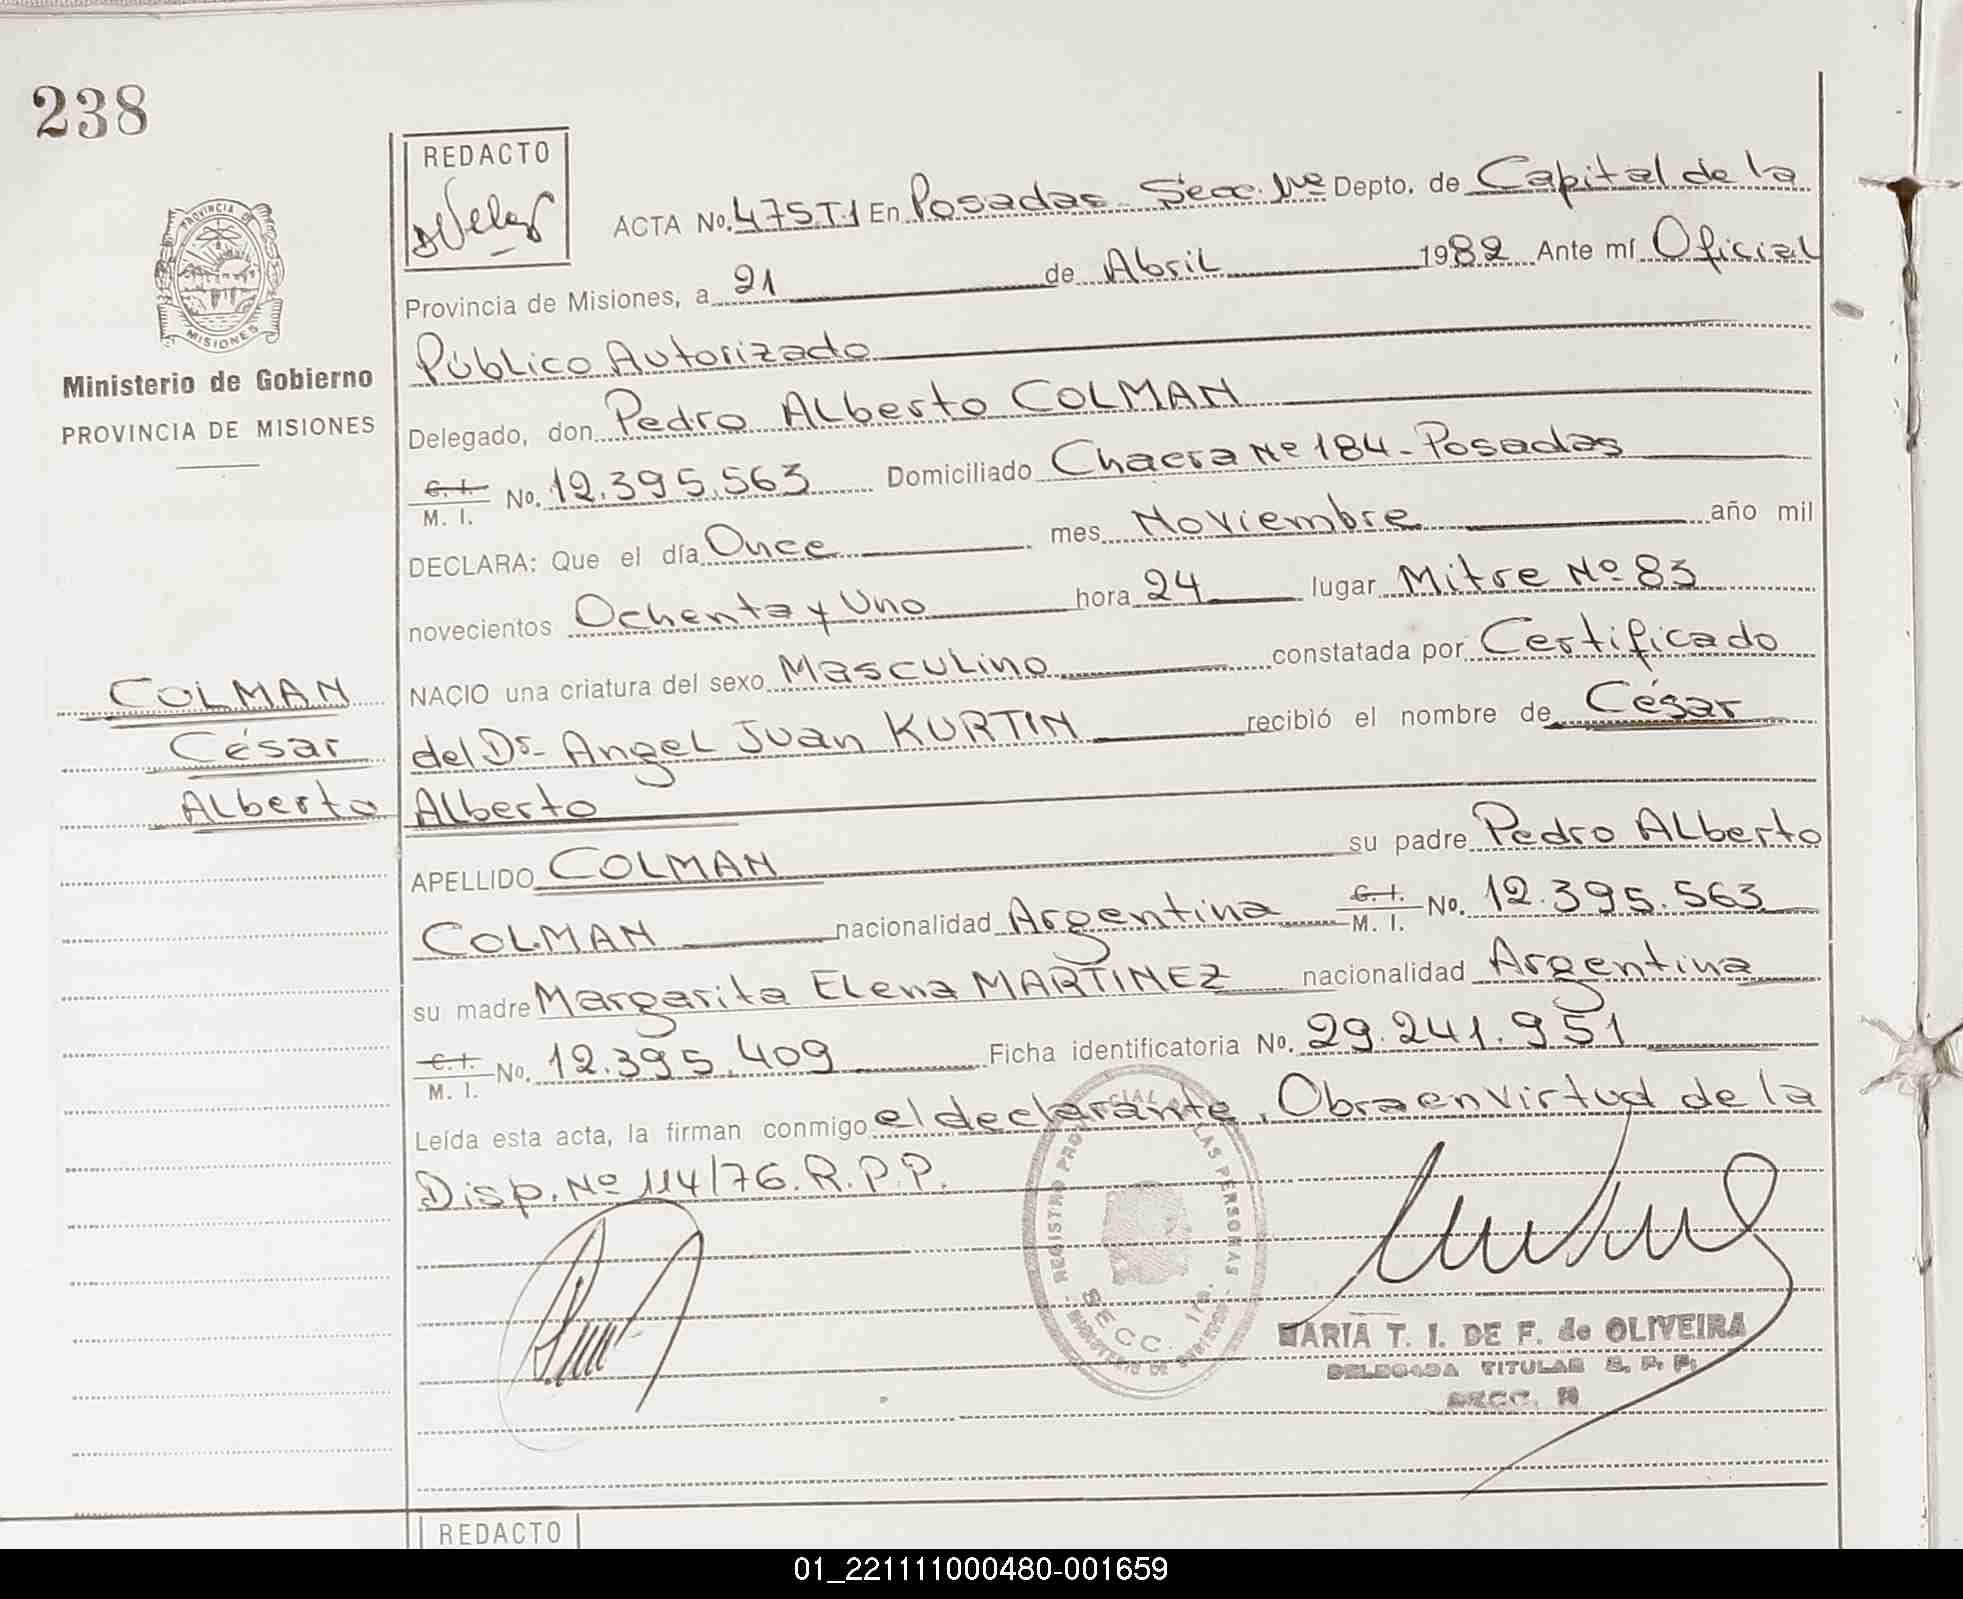 238
REDACTO
PROVINCIA DE
MISIONES
Ministerio de Gobierno
PROVINCIA DE MISIONES
ACTA No. 475 T.1 En Posadas Secc. 1ra Depto. de Capital de la
Provincia de Misiones, a 21 de Abril 1982 Ante mí Oficial
Público Autorizado
Delegado, don Pedro Alberto COLMAN
C. I. / M. I. No. 12.395.563 Domiciliado Chacra Nº 184 - Posadas
DECLARA: Que el día Once mes Noviembre año mil
novecientos Ochenta y Uno hora 24 lugar Mitre Nº 83
NACIO una criatura del sexo Masculino constatada por Certificado
del Dr. Angel Juan KURTIN recibió el nombre de César
Alberto
COLMAN
César
Alberto
APELLIDO COLMAN su padre Pedro Alberto
COLMAN nacionalidad Argentina C. I. / M. I. No. 12.395.563
su madre Margarita Elena MARTINEZ nacionalidad Argentina
C. I. / M. I. No. 12.395.409 Ficha identificatoria No. 29.241.951
Leída esta acta, la firman conmigo el declarante. Obra en virtud de la
Disp. Nº 114/76. R.P.P.
REGISTRO PROVINCIAL DE LAS PERSONAS
SECC. 1ra.
MARIA T. I. DE F. de OLIVEIRA
DELEGADA TITULAR R. P. P.
SECC.
REDACTO
01_221111000480-001659